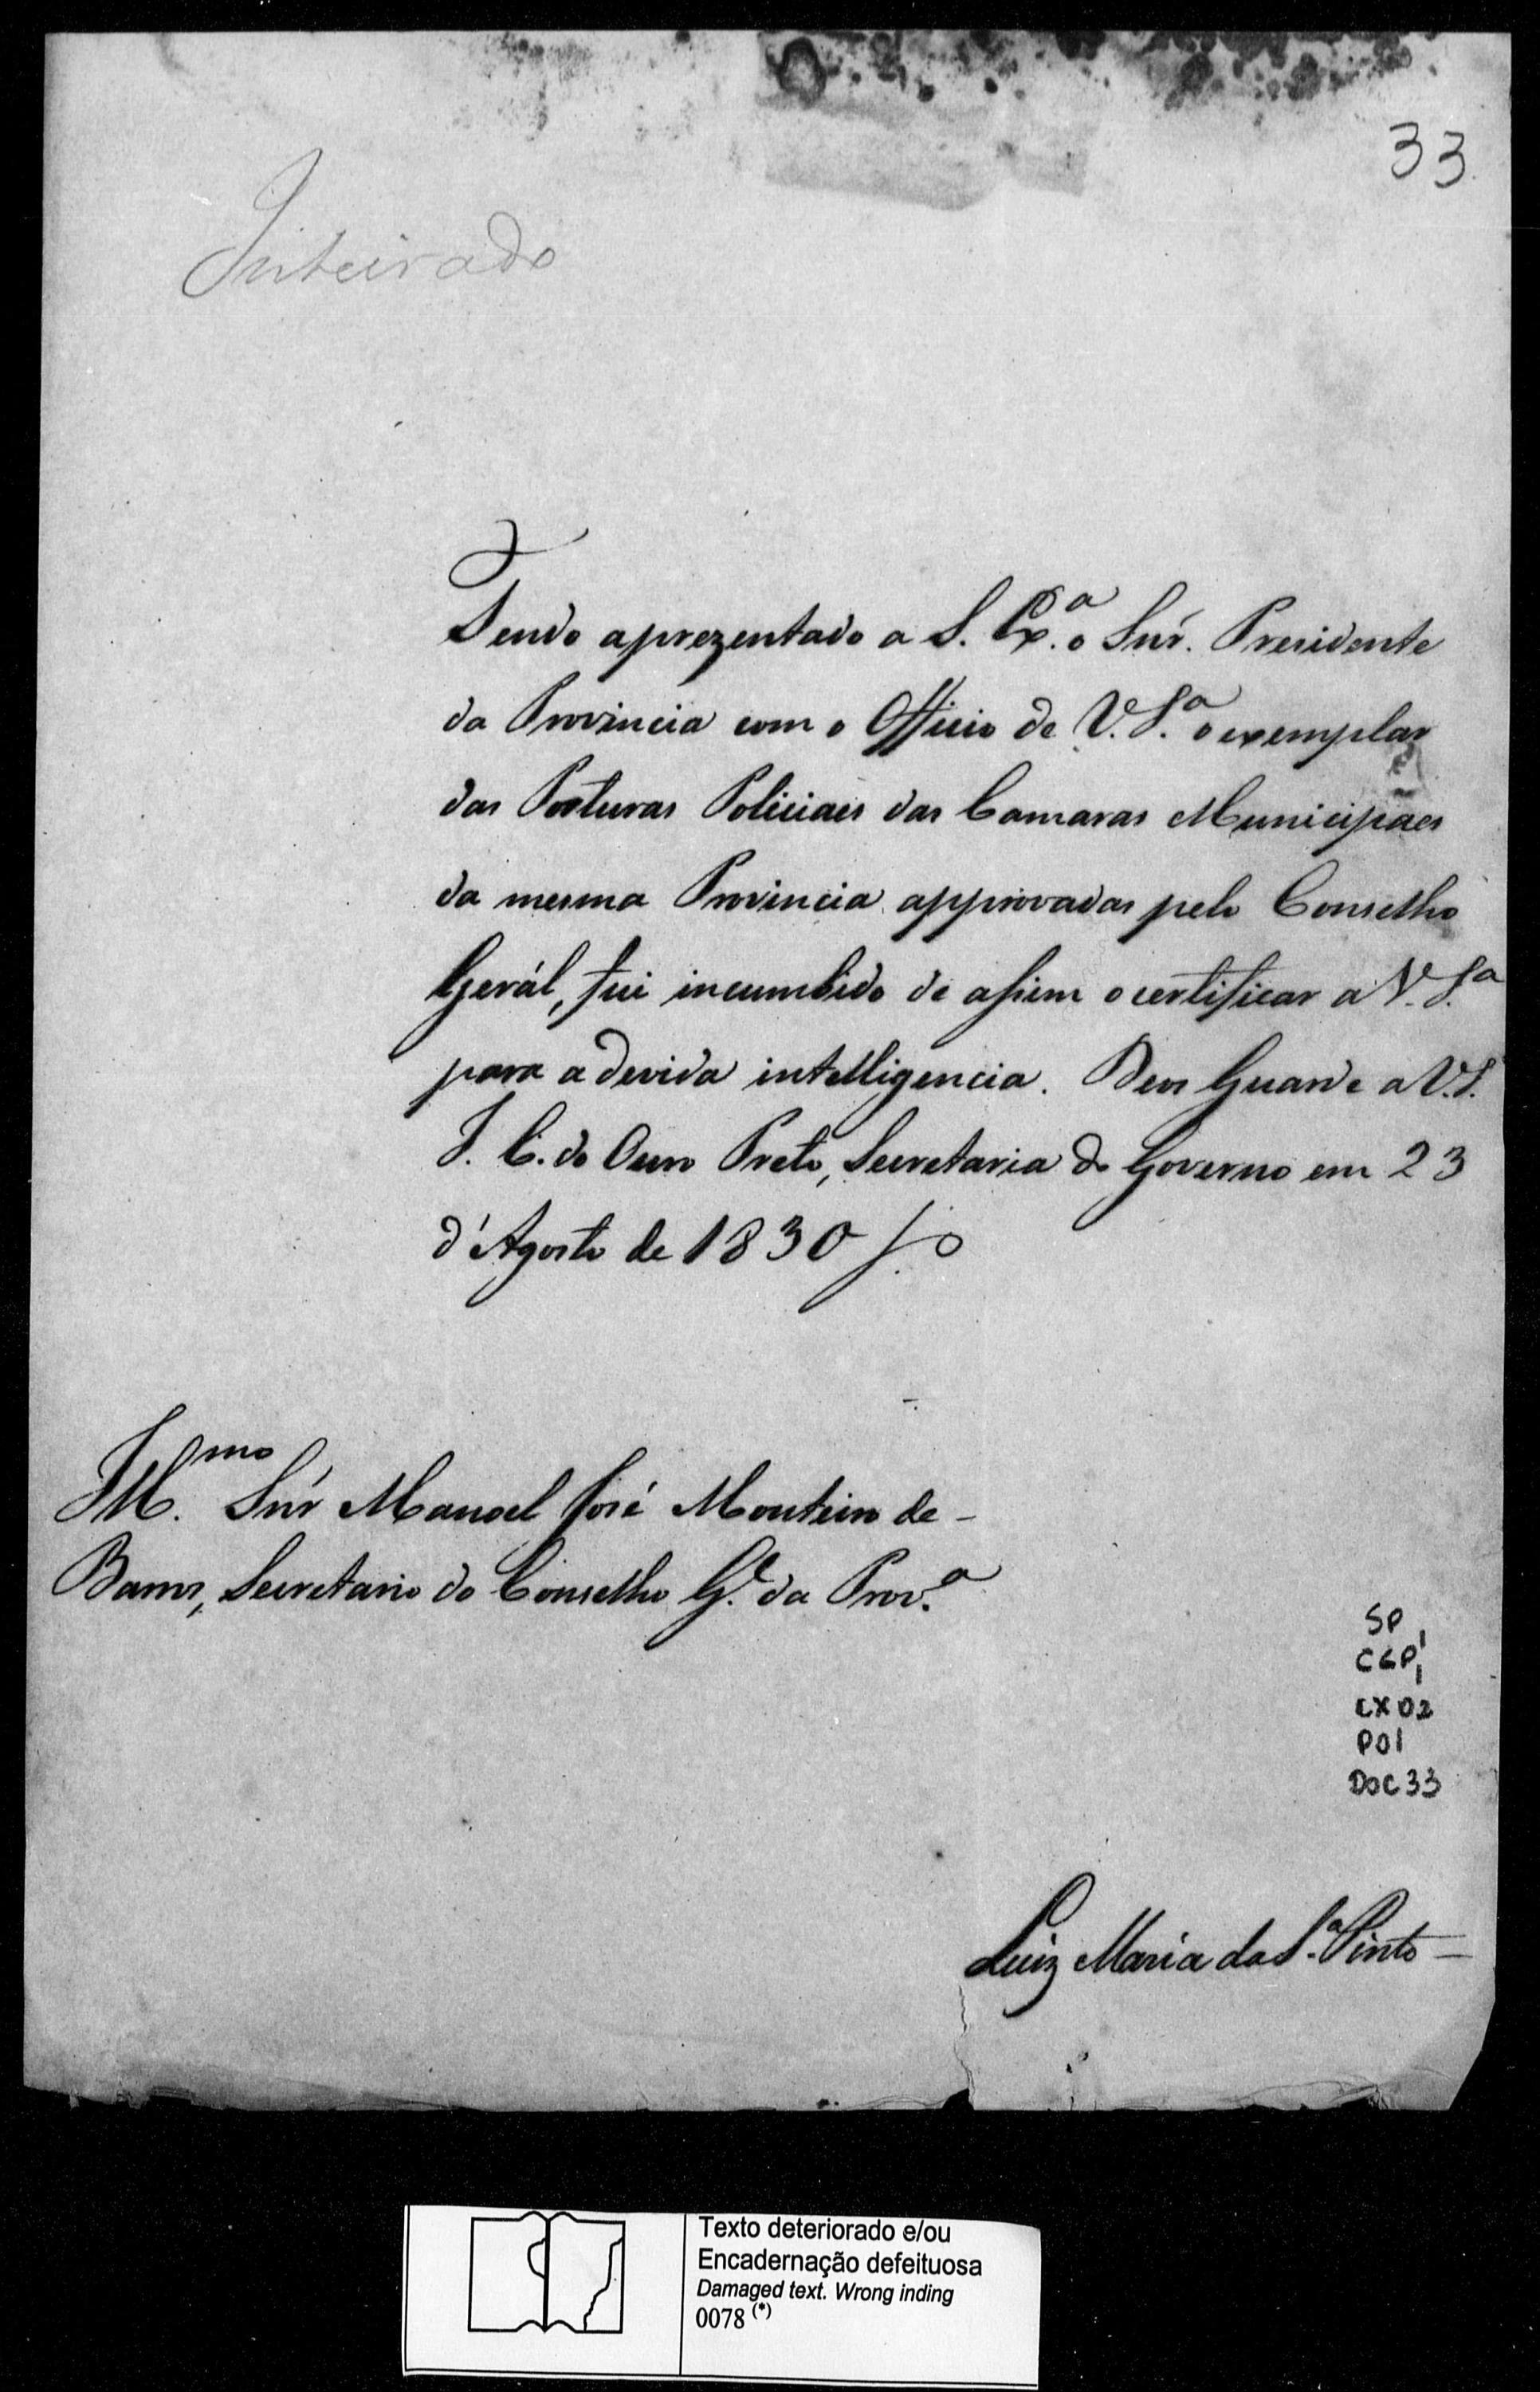 33
Inteirado
Sendo aprezentado a S. Ex.ª o Snr. Presidente
da Provincia com o Officio de V. S.ª o exemplar
das Posturas Policiaes das Camaras Municipaes
da mesma Provincia approvadas pelo Conselho
Gerál, fui incumbido de assim o certificar a V. S.ª
para a devida intelligencia. Deos Guarde a V. S.
I. C. do Ouro Preto, Secretaria do Governo em 23
d'Agosto de 1830
Ill.mo Snr Manoel José Monteiro de -
Barros, Secretario do Conselho G.l da Prov.ª
SP
CGP1
CX 02
P01
DOC 33
Luiz Maria da S.ª Pinto —
Texto deteriorado e/ou
Encadernação defeituosa
Damaged text. Wrong inding
0078 (*)